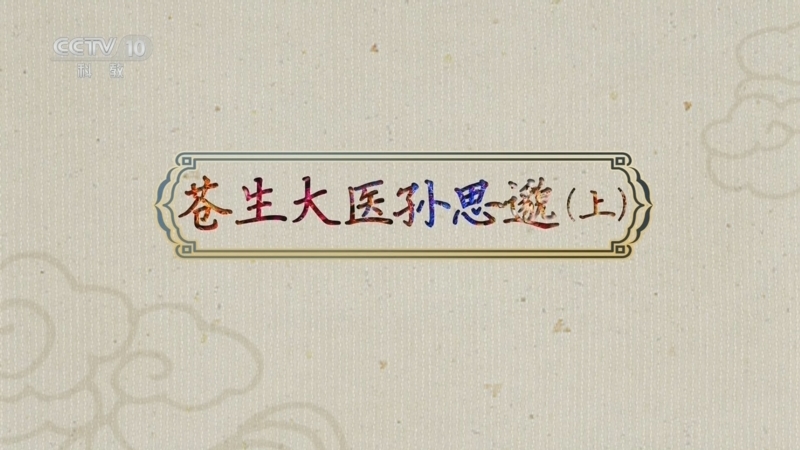 CCTV 10
科教
苍生大医孙思邈(上)